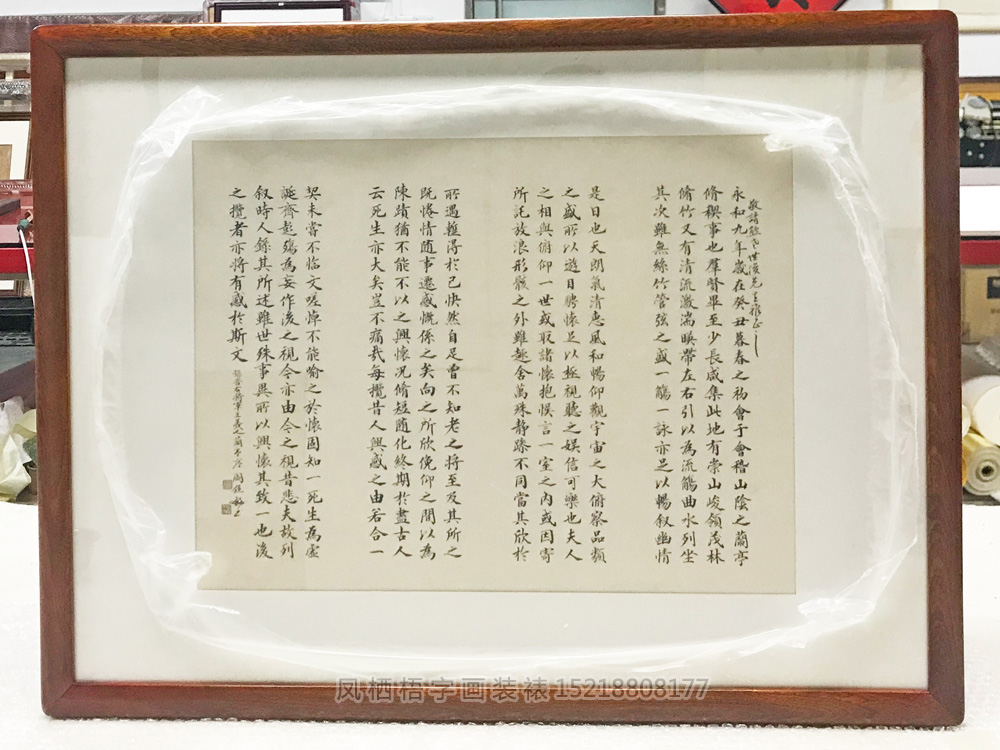 敬請 世 先生雅正
永和九年歲在癸丑暮春之初會于會稽山陰之蘭亭
脩稧事也羣賢畢至少長咸集此地有崇山峻領茂林
脩竹又有清流激湍暎帶左右引以為流觴曲水列坐
其次雖無絲竹管弦之盛一觴一詠亦足以暢叙幽情
是日也天朗氣清惠風和暢仰觀宇宙之大俯察品類
之盛所以遊目騁懷足以極視聽之娛信可樂也夫人
之相與俯仰一世或取諸懷抱悞言一室之內或因寄
所託放浪形骸之外雖趣舍萬殊静躁不同當其欣於
所遇蹔得於己快然自足曾不知老之將至及其所之
既惓情隨事遷感慨係之矣向之所欣俛仰之間以為
陳蹟猶不能不以之興懷況脩短隨化終期於盡古人
云死生亦大矣豈不痛哉每攬昔人興感之由若合一
契未嘗不臨文嗟悼不能喻之於懷固知一死生為虛
誕齊彭殤為妄作後之視今亦由今之視昔悲夫故列
叙時人錄其所述雖世殊事異所以興懷其致一也後
之攬者亦將有感於斯文
晉右將軍王羲之蘭亭序
凤栖梧字画装裱 15218808177